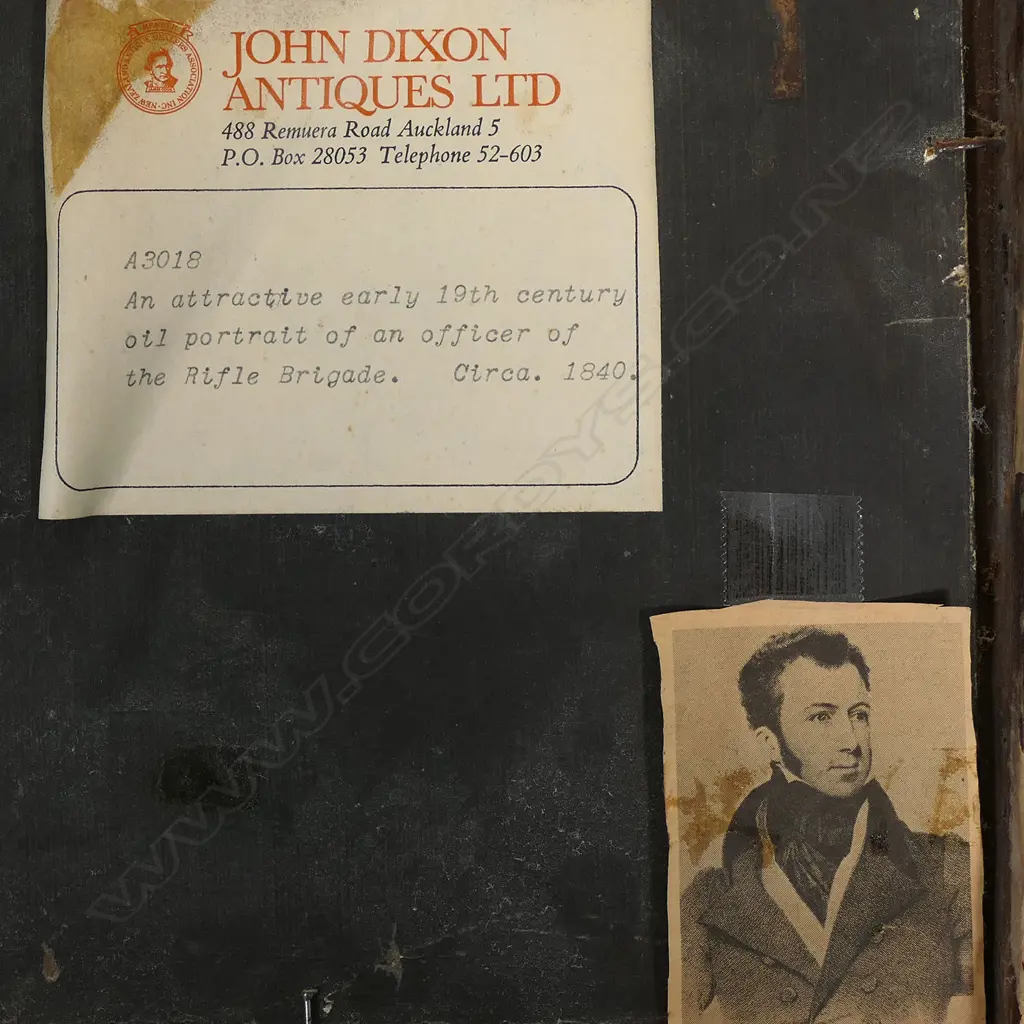 MEMBER
NEW ZEALAND ANTIQUE DEALERS ASSOCIATION INC
JOHN DIXON
ANTIQUES LTD
488 Remuera Road Auckland 5
P.O. Box 28053 Telephone 52-603
A3018
An attractive early 19th century
oil portrait of an officer of
the Rifle Brigade. Circa. 1840.
WWW.CORDYS.CO.NZ